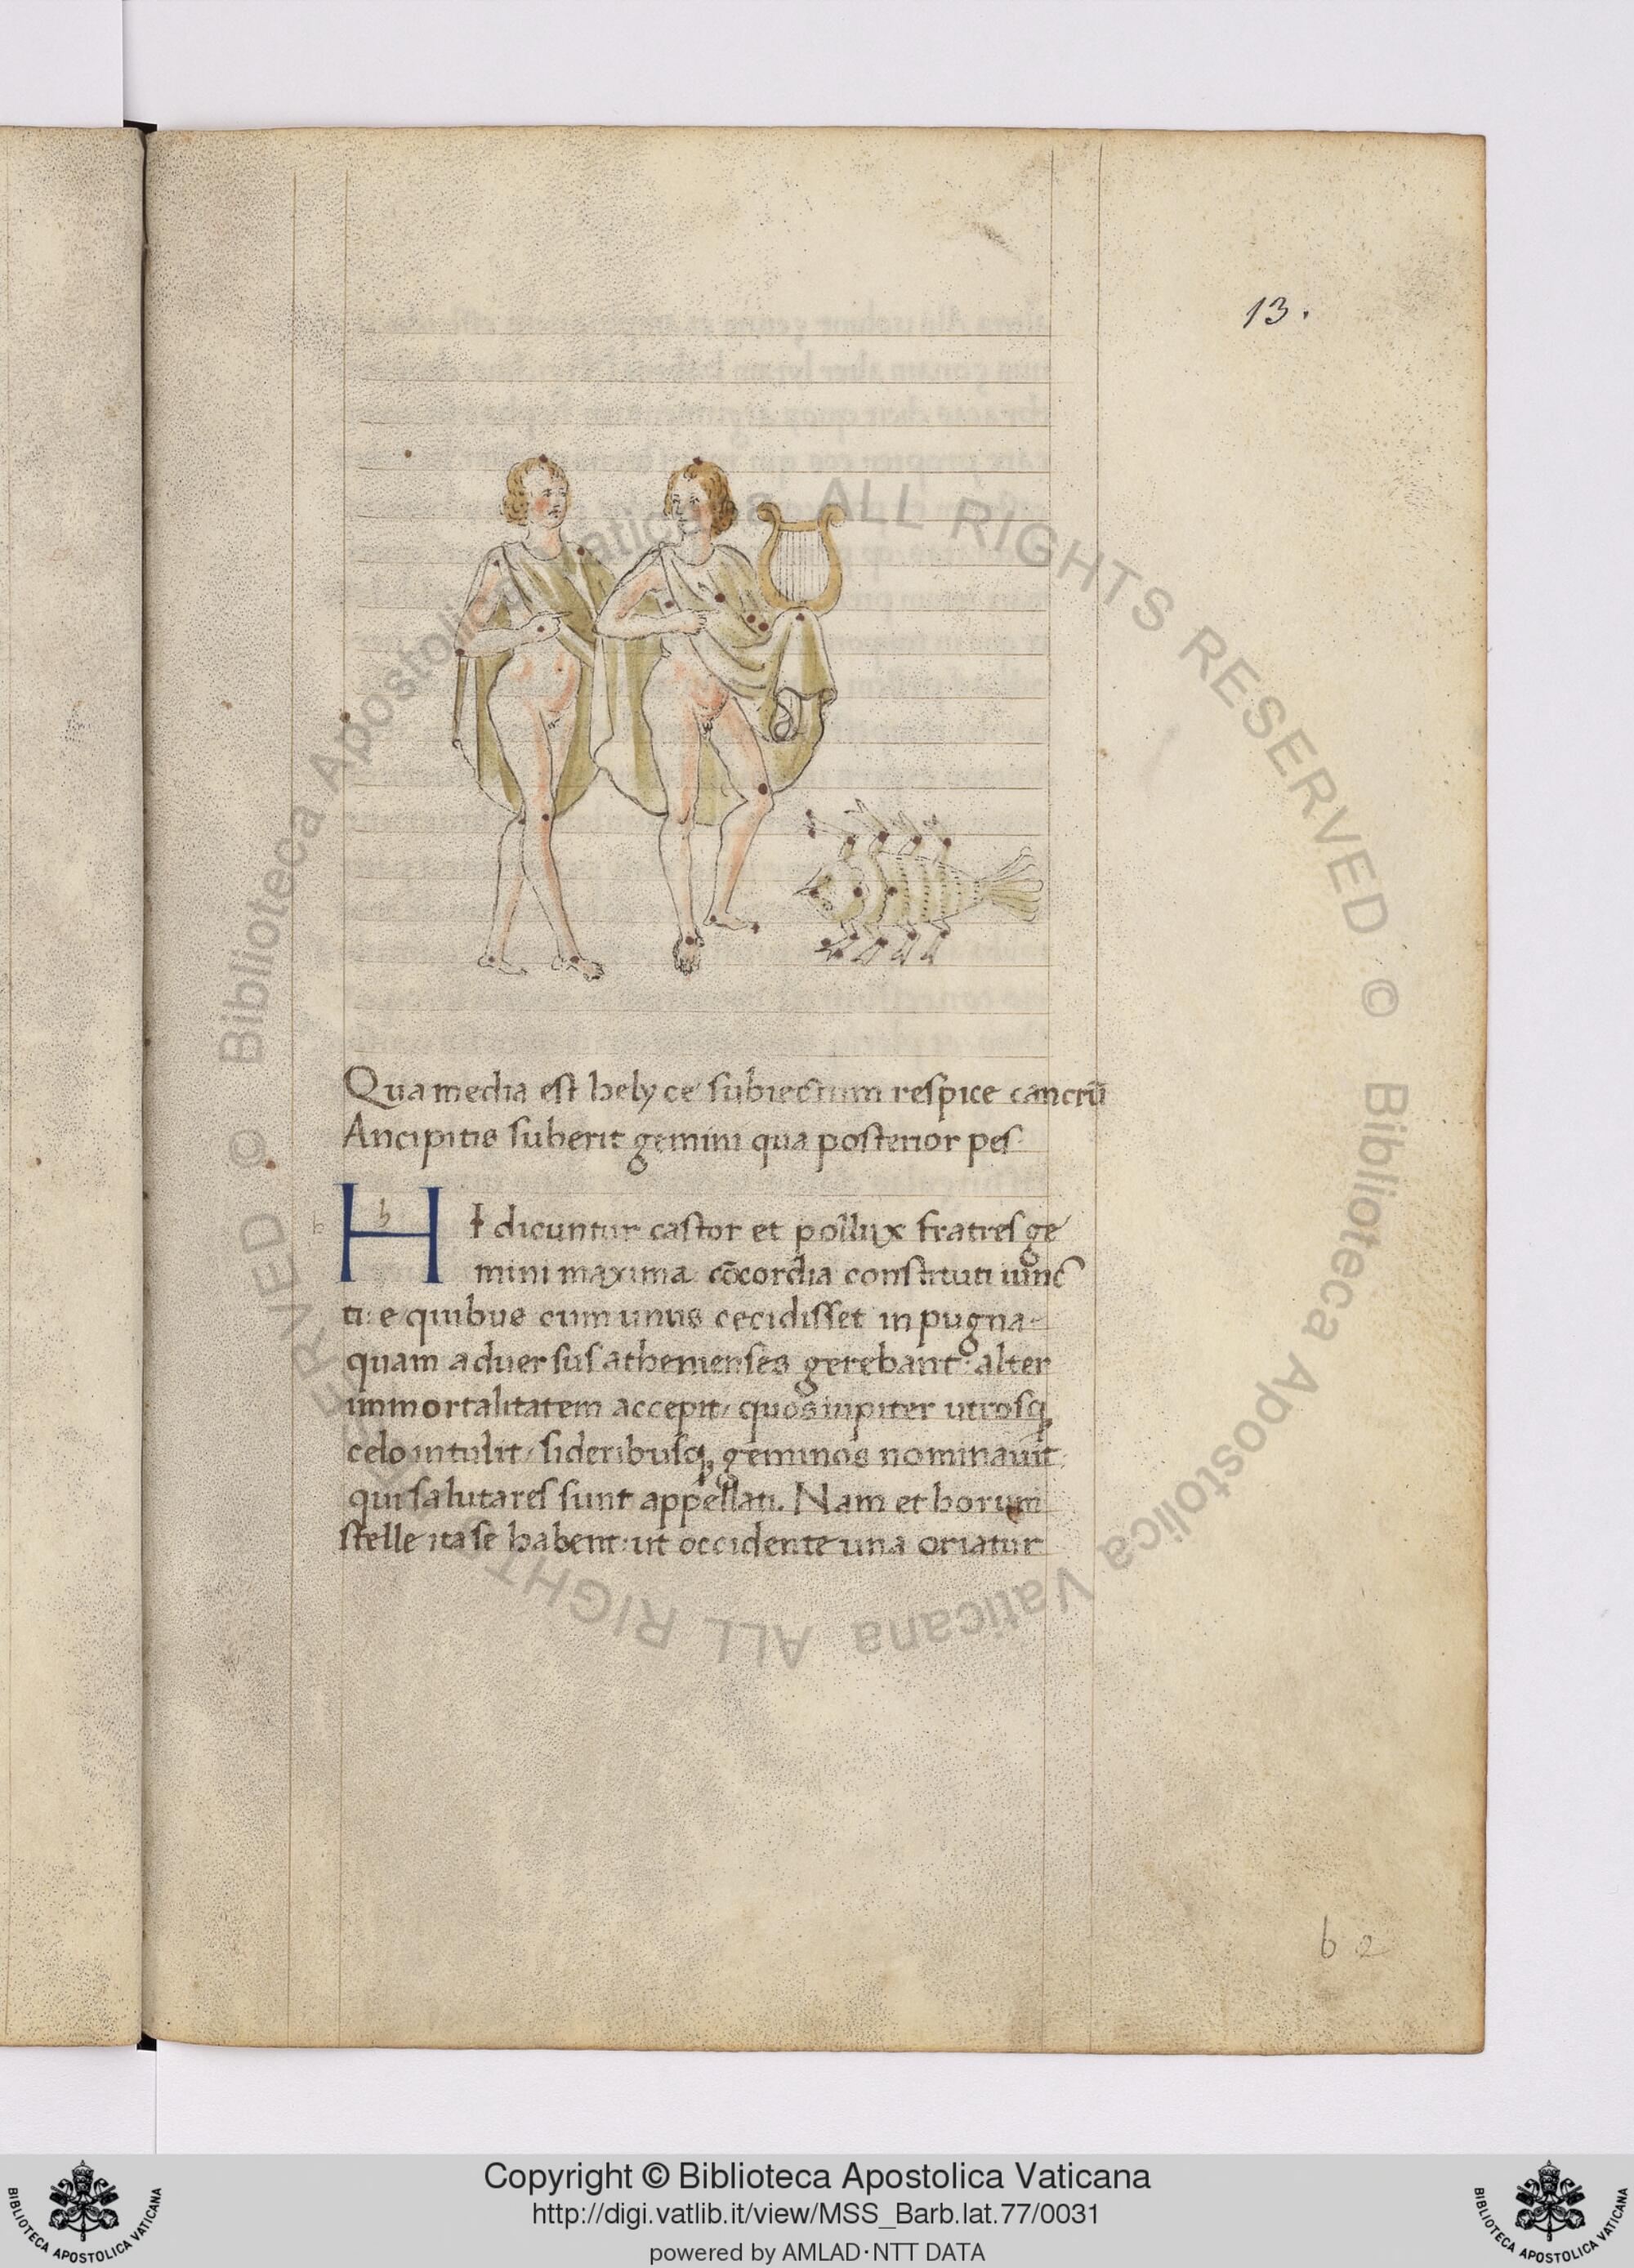 13.
Qua media est helyce subiectum respice cancrū
Ancipitis suberit gemini qua posterior pes
h
b
HI dicuntur castor et pollux fratres ge
mini maxima cōcordia constituti iunc
ti: e quibus cum unus cecidisset in pugna
quam aduersus athenienses gerebant: alter
immortalitatem accepit/ quos iupiter utrosq;
celo intulit/ sideribusq; geminos nominauit
qui salutares sunt appellati. Nam et horum
stelle ita se habent: ut occidente una oriatur
b 2
© Biblioteca Apostolica Vaticana ALL RIGHTS RESERVED © Biblioteca Apostolica Vaticana ALL RIGHTS RESERVED
Copyright © Biblioteca Apostolica Vaticana
http://digi.vatlib.it/view/MSS_Barb.lat.77/0031
powered by AMLAD·NTT DATA
BIBLIOTECA APOSTOLICA VATICANA
BIBLIOTECA APOSTOLICA VATICANA